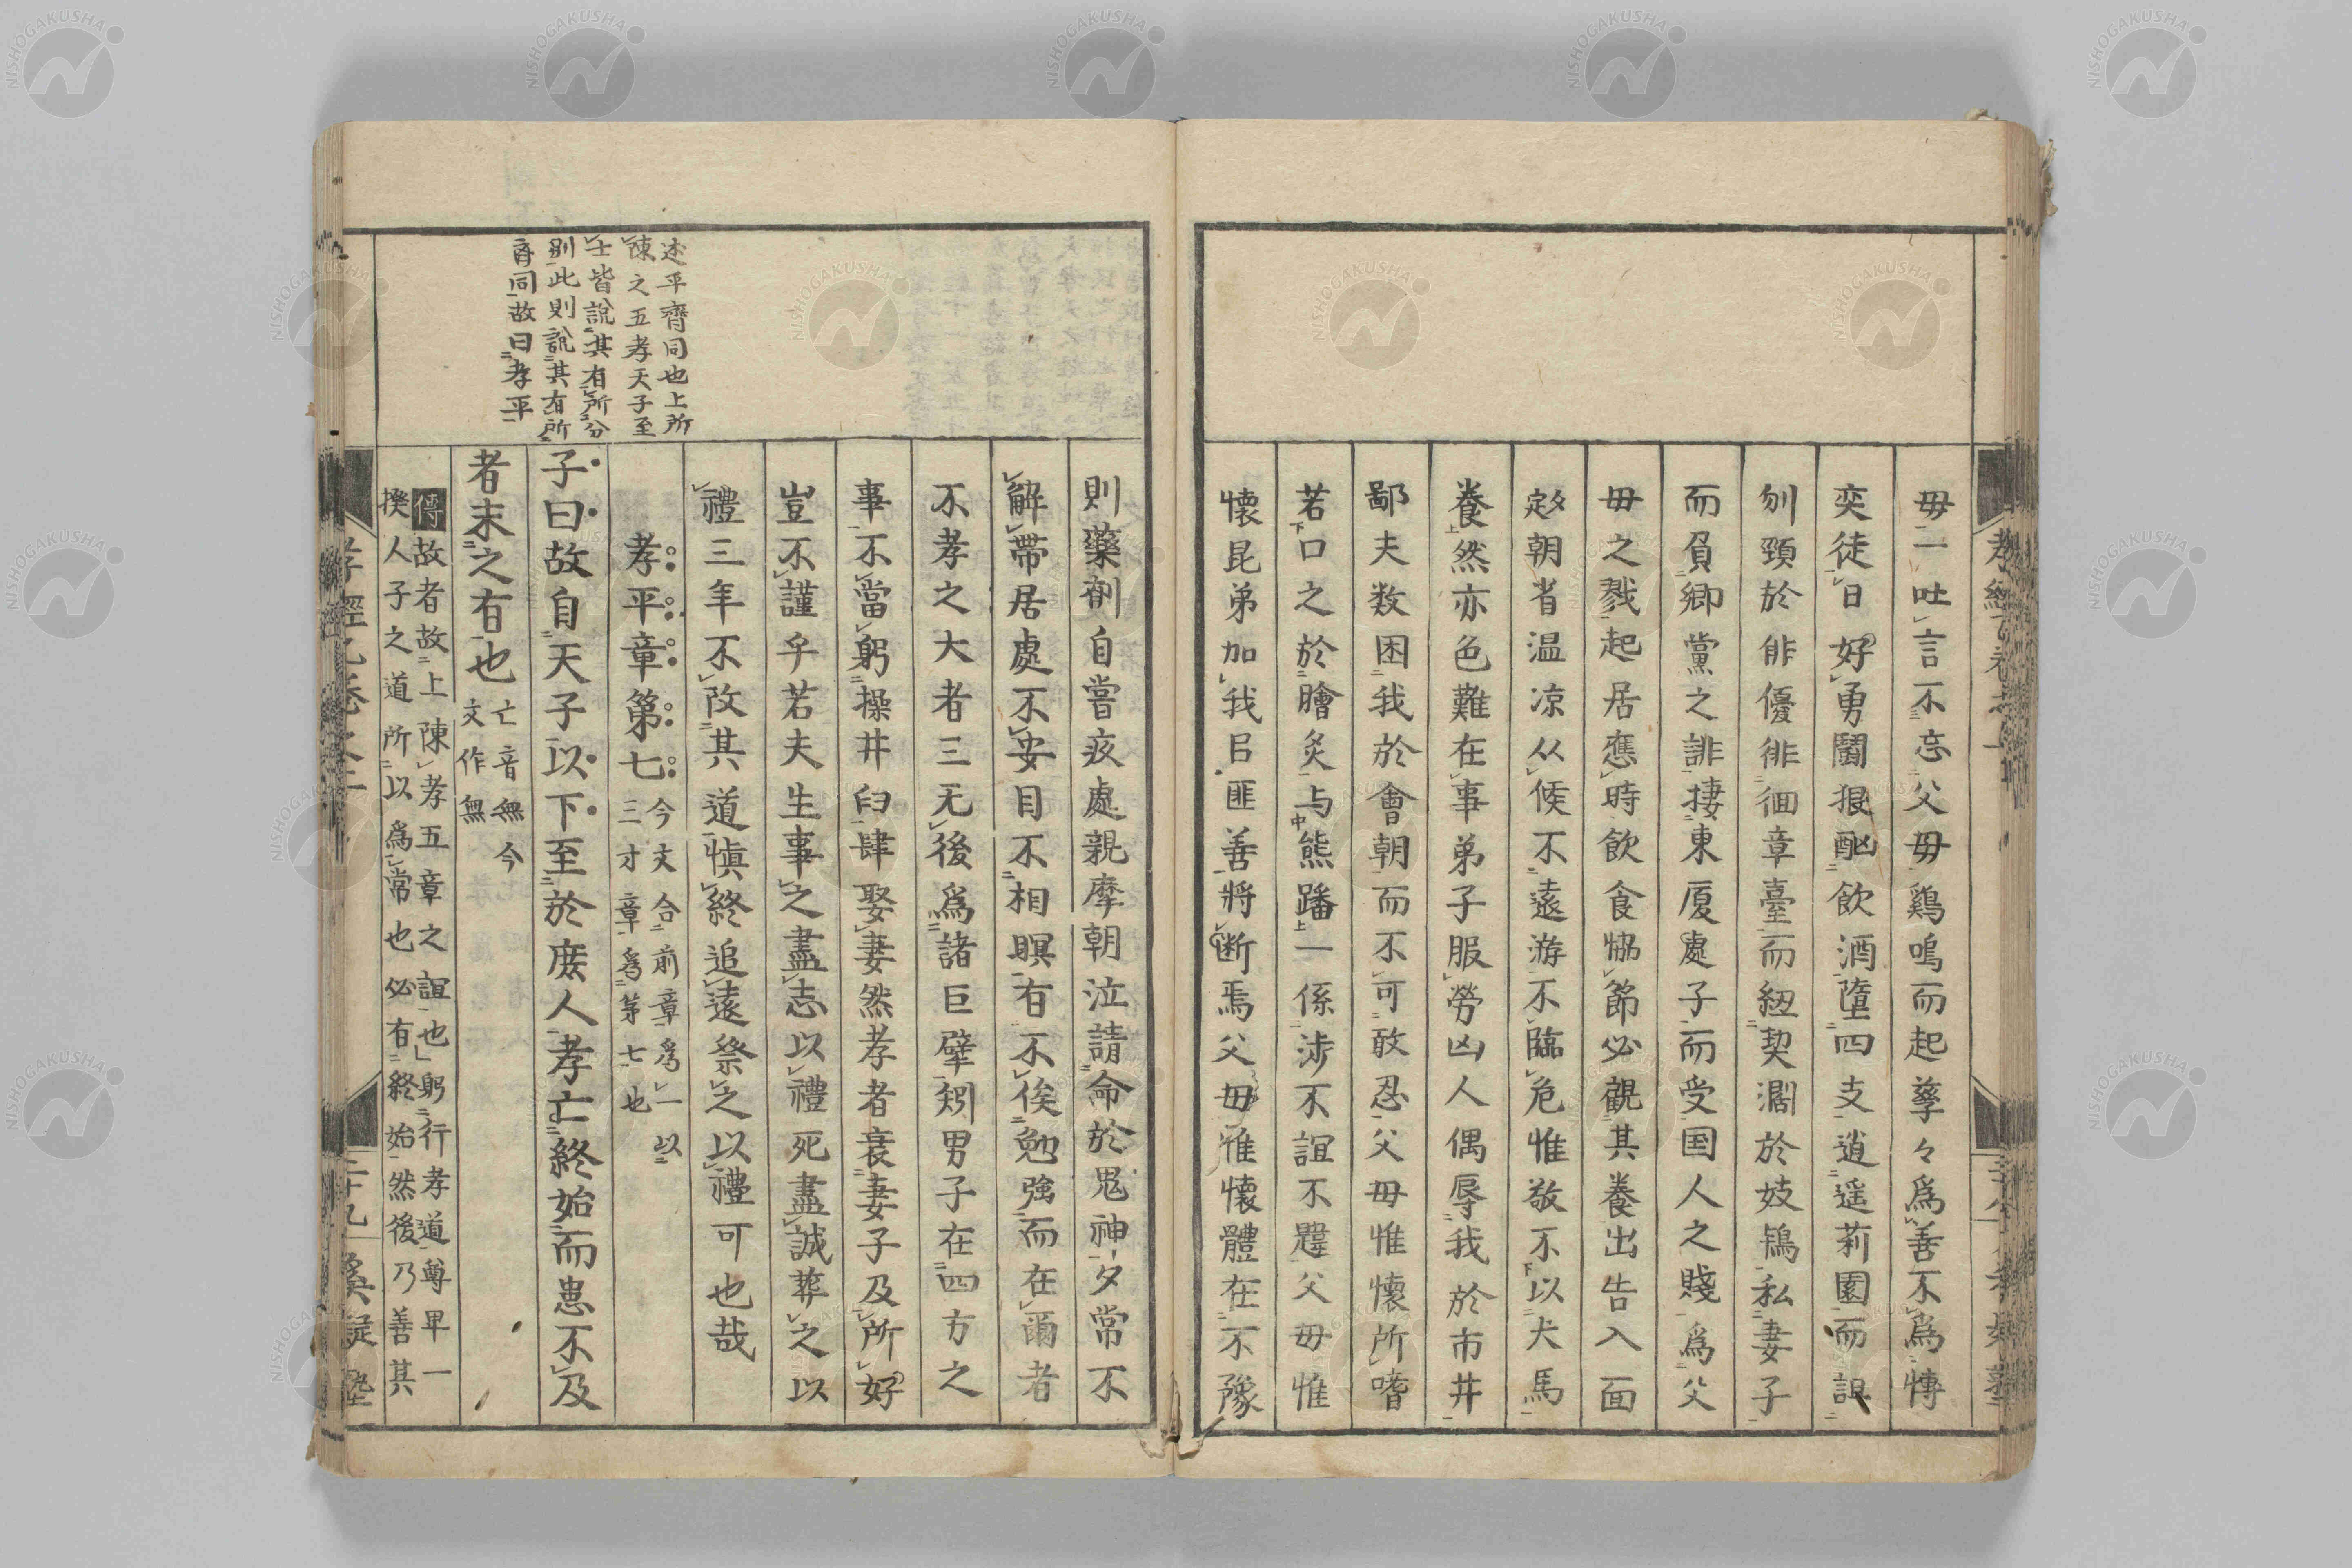 毋一吐言不忘父毋鷄鳴而起孳々爲善不爲慱
奕徒日好勇鬪狠酗飲酒墮四支逍遥莉園而誤
刎頸於俳優徘徊章臺而紐契濶於妓鴇私妻子
而負卿黨之誹摟東厦處子而受国人之賤爲父
毋之戮起居應時飲食恊節必觀其養出告入面
㝎朝省温凉从候不遠游不臨危惟敬不以犬馬
養然亦色難在事弟子服勞凶人偶辱我於市井
鄙夫数困我於會朝而不可敢忍父毋惟懷所嗜
若口之於膾炙与熊蹯一係涉不誼不韙父毋惟
懷昆弟加我㠯匪善將断焉父毋惟懷體在不豫
則藥劑自嘗疾處親摩朝泣請命於鬼神夕常不
解帶居處不安目不相瞑有不俟勉強而在爾者
不孝之大者三无後爲諸巨擘矧男子在四方之
事不當躬操井臼肆娶妻然孝者衰妻子及所好
豈不謹乎若夫生事之盡志以禮死盡誠葬之以
禮三年不改其道愼終追遠祭之以禮可也哉
孝平章第七 今文合前章爲一以三才章爲第七也
子曰故自天子以下至於庶人孝亡終始而患不及
者末之有也 亡音無今文作無
傳故者故上陳孝五章之誼也躬行孝道尊卑一
揆人子之道所以爲常也必有終始然後乃善其
述平齊同也上所
陳之五孝天子至
士皆說其有所分
別此則說其有所
齊同故曰孝平